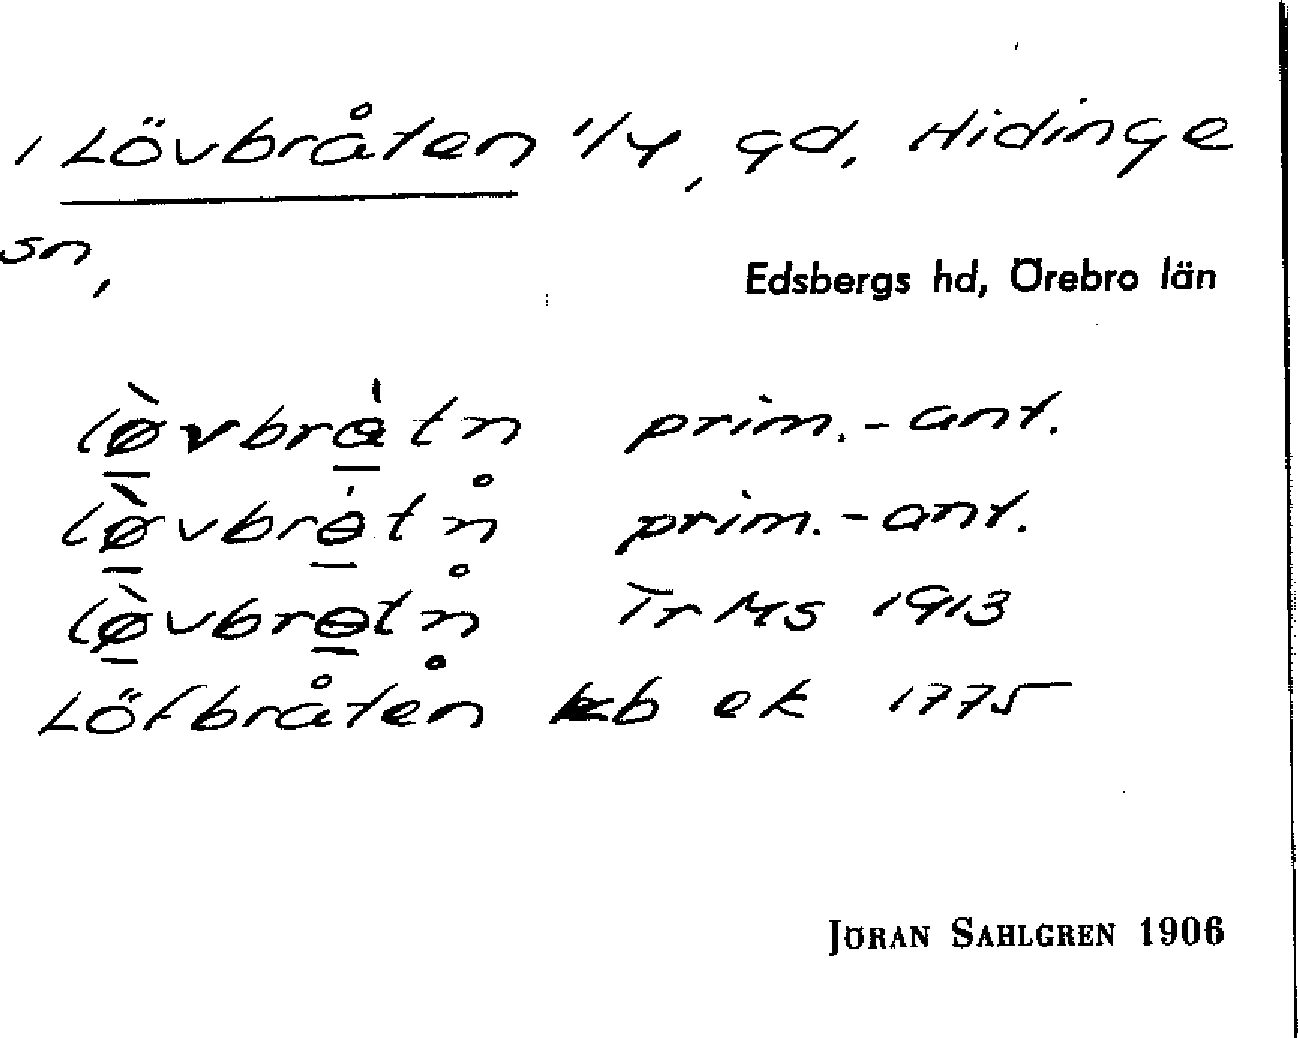 1 Lövbråten 1/4, gd, Hidinge
sn,
Edsbergs hd, Örebro län
lø̠̀vbrà̠tn prim.-ant.
lø̠̀vbrɵ̠̀tn̊ prim.-ant.
lø̠̀vbrɵ̠tn̊ Tr Ms 1913
Löfbråten kb ek 1775
JÖRAN SAHLGREN 1906